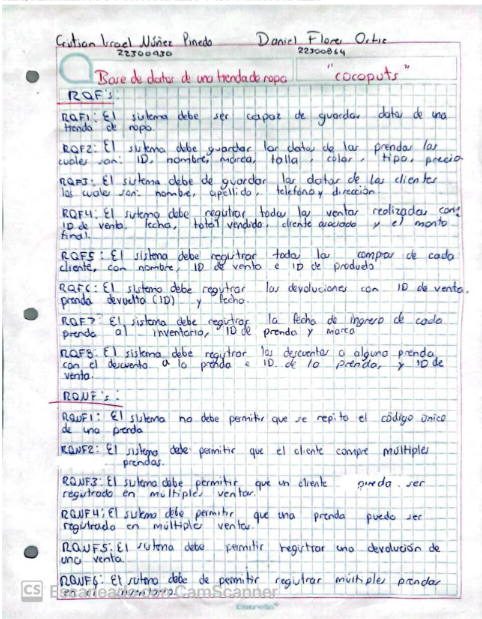 Cristian Israel Núñez Pinedo Daniel Flores Ortiz
22300930 22300864
Base de datos de una tienda de ropa "cocoputs"
RQF's:
RQF1: El sistema debe ser capaz de guardar datos de una
tienda de ropa.
RQF2: El sistema debe guardar los datos de las prendas las
cuales son: ID, nombre, marca, talla, color, tipo, precio
RQF3: El sistema debe de guardar los datos de los clientes
los cuales son: nombre, apellido, teléfono y dirección
RQF4: El sistema debe registrar todas las ventas realizadas con:
ID de venta, fecha, total vendido, cliente asociado y el monto
final.
RQF5: El sistema debe registrar todas las compras de cada
cliente, con nombre, ID de venta e ID de producto
RQF6: El sistema debe registrar las devoluciones con ID de venta,
prenda devuelta (ID) y fecha.
RQF7: El sistema debe registrar la fecha de ingreso de cada
prenda al inventario, ID de prenda y marca
RQF8: El sistema debe registrar los descuentos a alguna prenda
con el descuento a la prenda e ID de la prenda, y ID de
venta.
RQNF's:
RQNF1: El sistema no debe permitir que se repita el código único
de una prenda
RQNF2: El sistema debe permitir que el cliente compre multiples
prendas.
RQNF3: El sistema debe permitir, que un cliente pueda ser
registrado en multiples ventas.
RQNF4: El sistema debe permitir, que una prenda pueda ser
registrado en múltiples ventas.
RQNF5: El sistema debe permitir registrar una devolución de
una venta.
RQNF6: El sistema debe de permitir registrar multiples prendas
CS Escaneado con CamScanner
Estrella